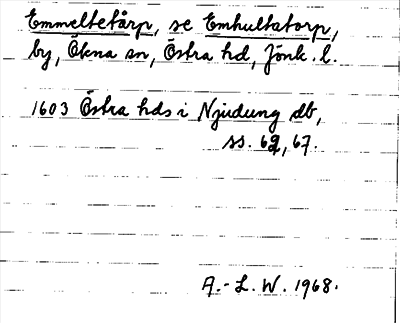 Emmeltetårp, se Emhultatorp,
by, Ökna sn, Östra hd, Jönk. l.
1603 Östra hds i Njudung db,
ss. 62, 67.
A.-L. W. 1968.